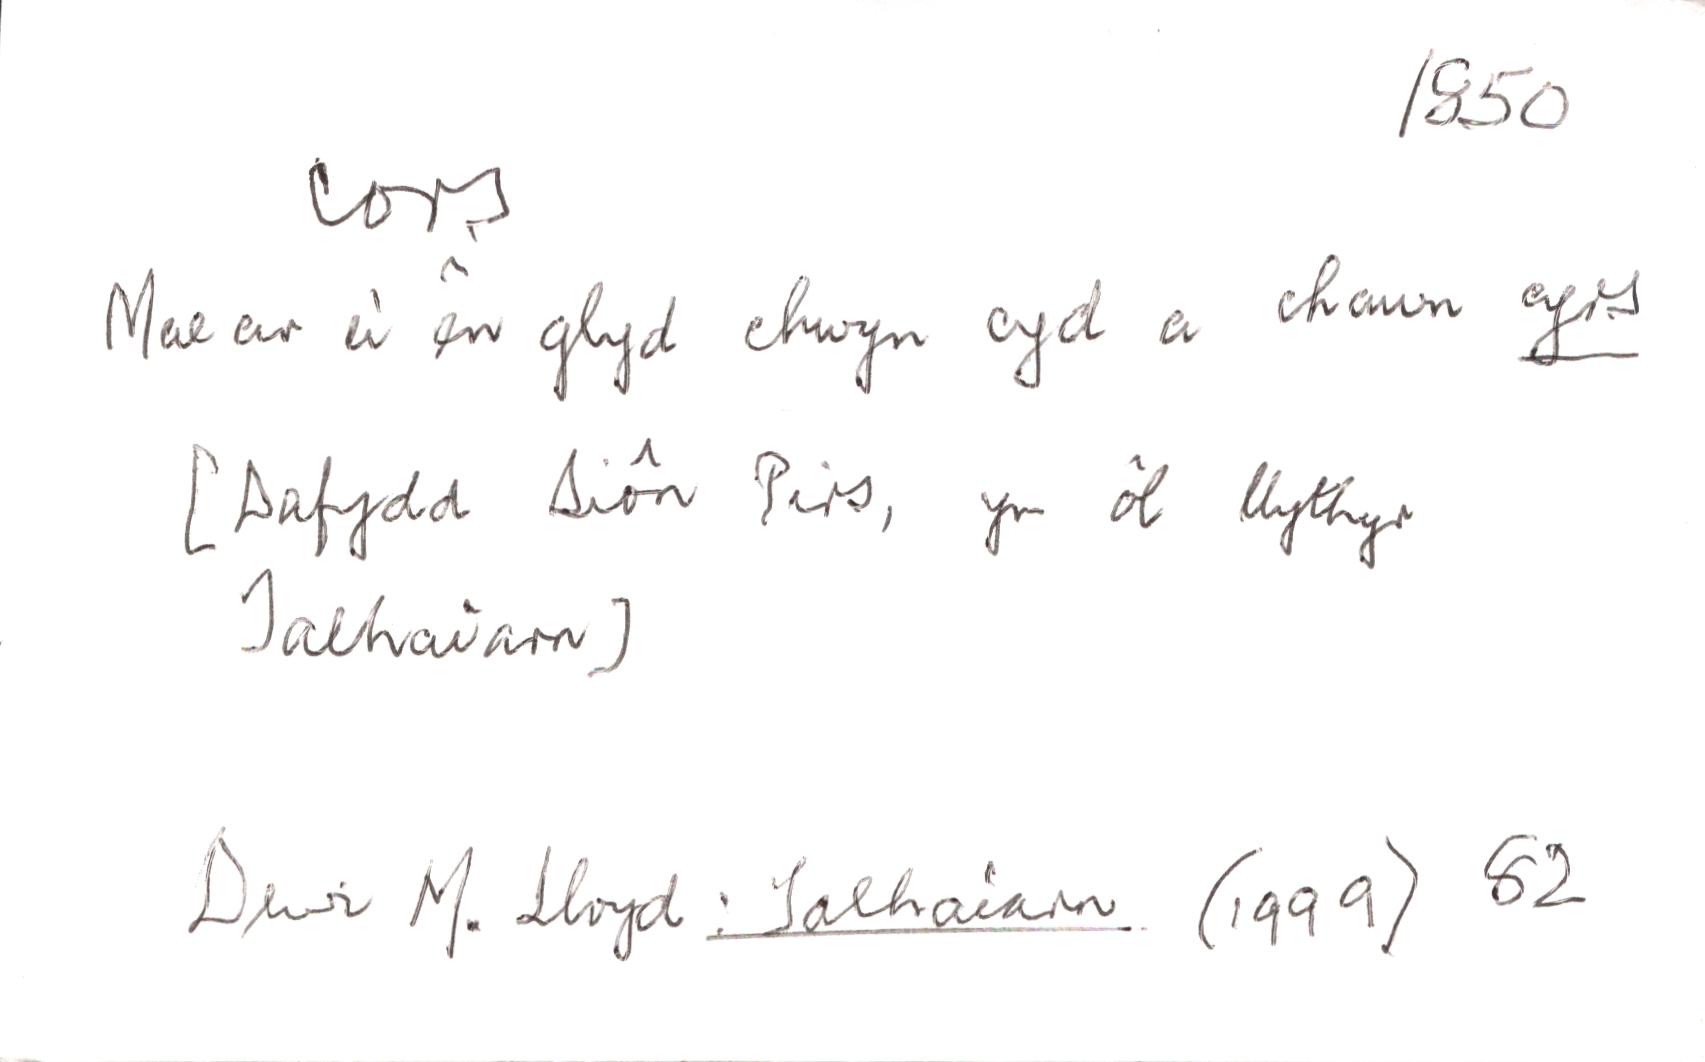 1850
cors
Mae ar ei ên glyd chwyn cyd a chawn cyrs
[Dafydd Siôn Pirs, yn ôl llythyr
Talhaiarn]
Dewi M. Lloyd: Talhaiarn (1999) 62